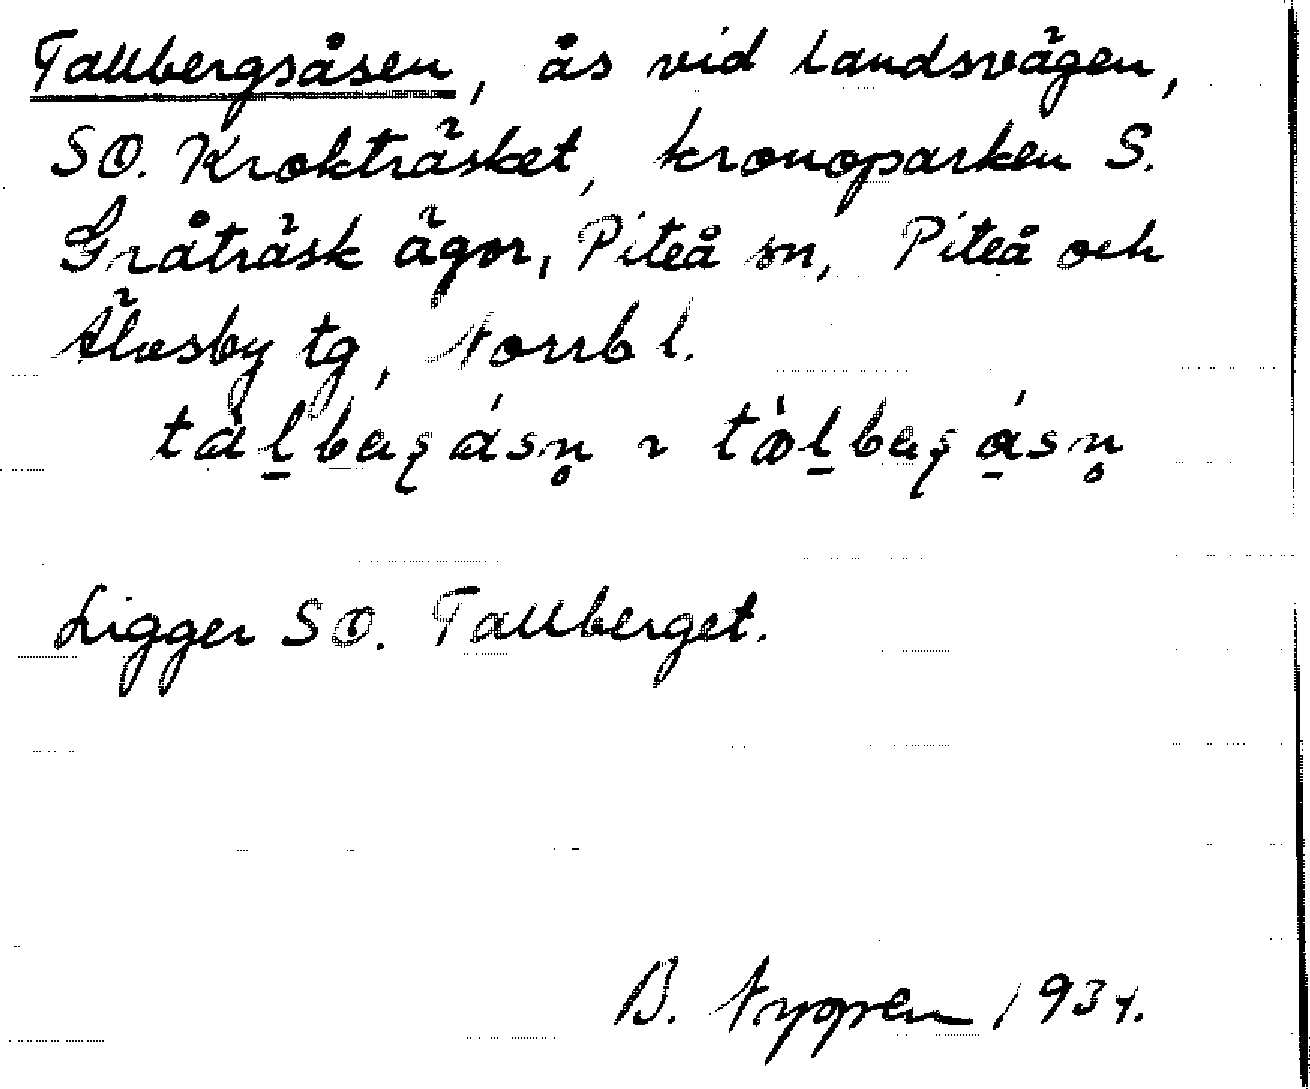 Tallbergsåsen, ås vid landsvägen,
SO. Krokträsket, kronoparken S.
Gråträsk ägor, Piteå sn, Piteå och
Älvsby tg, Norrb l.
Ligger SO. Tallberget.
B. 193